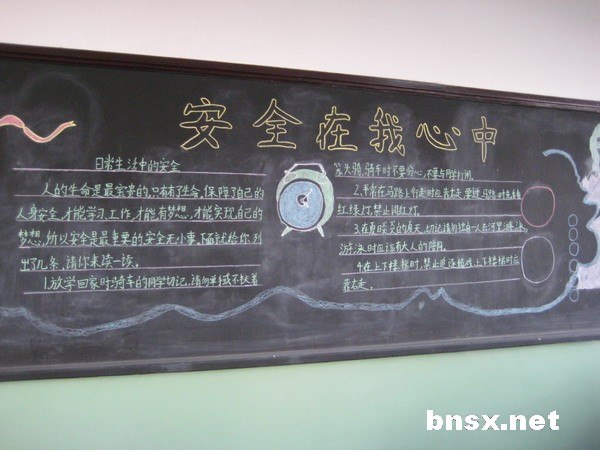 安全在我心中
日常生活中的安全
人的生命是最宝贵的,只有有了生命,保障了自己的
人身安全,才能学习工作,才能有梦想,才能实现自己的
梦想,所以安全是最重要的安全无小事,下面就给你列
出了几条,请你来读一读。
1.放学回家时骑车的同学切记,请勿单手或不扶着
笼头骑,骑车时不要分心,不要与同学打闹。
2.平常在马路上行走时应靠右走,要过马路时先看看
红绿灯,禁止闯红灯。
3.在炎热的夏天,切记请勿独自一人去河里游泳,
游泳时应该有大人的陪同。
4.在上下楼梯时,禁止追逐,上下楼梯时应
靠右走。
bnsx.net